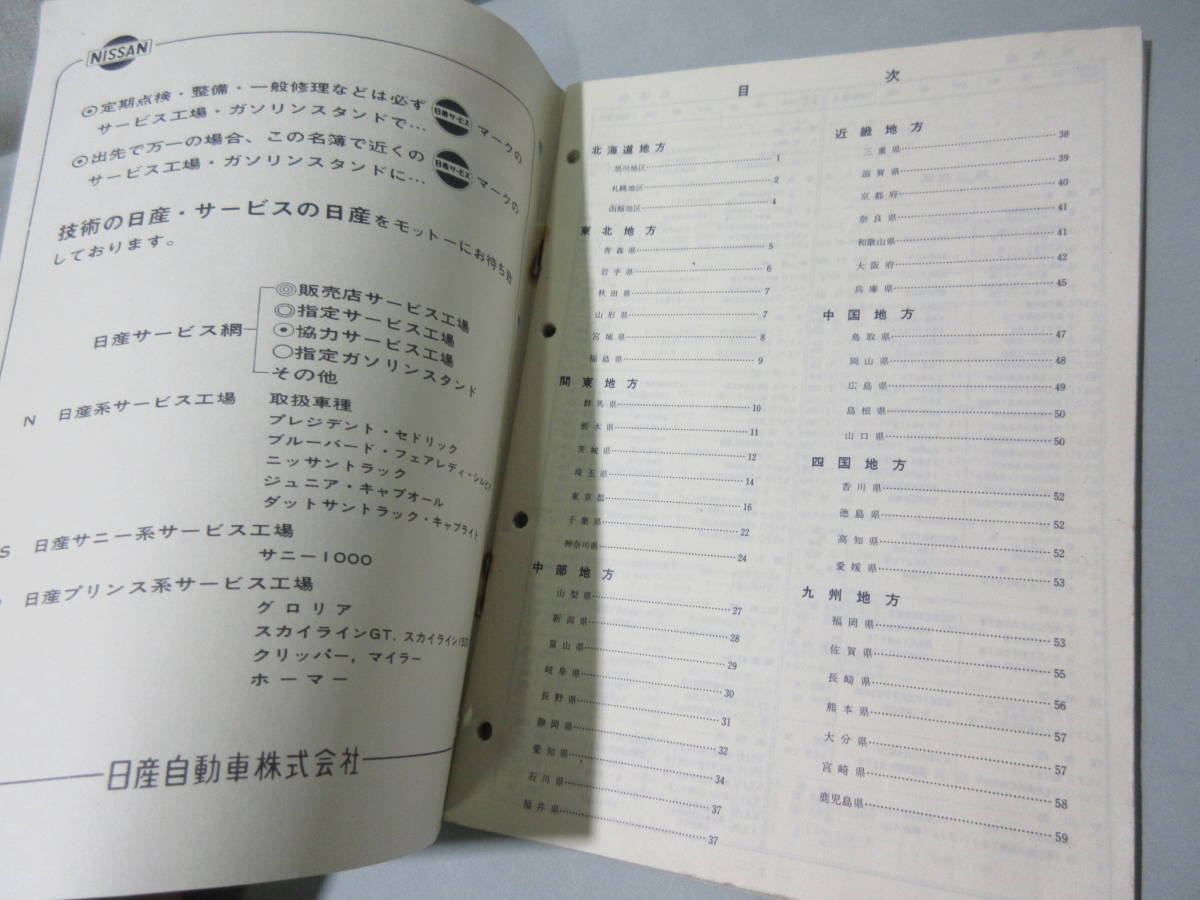 NISSAN
⊙定期点検・整備・一般修理などは必ず 日産サービス マークの
サービス工場・ガソリンスタンドで…
⊙出先で万一の場合、この名簿で近くの 日産サービス マークの
サービス工場・ガソリンスタンドに…
技術の日産・サービスの日産をモットーにお待ち致
しております。
日産サービス網
◎販売店サービス工場
◎指定サービス工場
⊙協力サービス工場
○指定ガソリンスタンド
その他
N 日産系サービス工場 取扱車種
プレジデント・セドリック
ブルーバード・フェアレディ・シルビア
ニッサントラック
ジュニア・キャブオール
ダットサントラック・キャブライト
S 日産サニー系サービス工場
サニー1000
日産プリンス系サービス工場
グロリア
スカイラインGT, スカイライン1500
クリッパー, マイラー
ホーマー
日産自動車株式会社
目 次
北海道地方
旭川地区 1
札幌地区 2
函館地区 4
東北地方
青森県 5
岩手県 6
秋田県 7
山形県 7
宮城県 8
福島県 9
関東地方
群馬県 10
栃木県 11
茨城県 12
埼玉県 14
東京都 16
千葉県 22
神奈川県 24
中部地方
山梨県 27
新潟県 28
富山県 29
岐阜県 30
長野県 31
静岡県 32
愛知県 34
石川県 37
福井県 37
近畿地方
三重県 38
滋賀県 39
京都府 40
奈良県 41
和歌山県 41
大阪府 42
兵庫県 45
中国地方
鳥取県 47
岡山県 48
広島県 49
島根県 50
山口県 50
四国地方
香川県 52
徳島県 52
高知県 52
愛媛県 53
九州地方
福岡県 53
佐賀県 55
長崎県 56
熊本県 57
大分県 57
宮崎県 58
鹿児島県 59